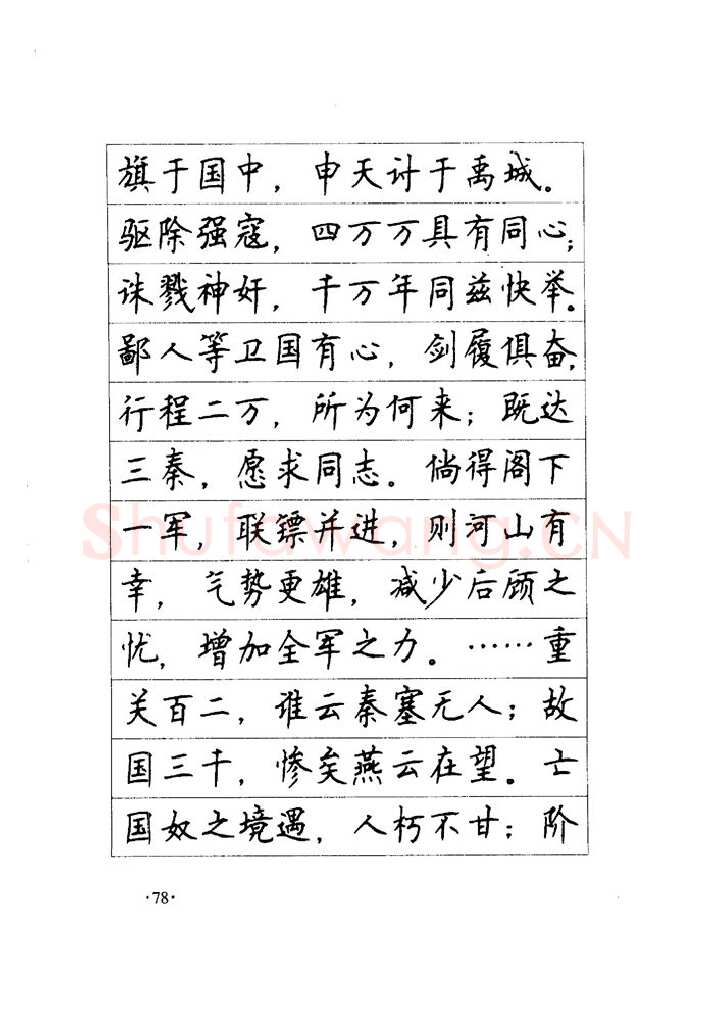 旗于国中，申天讨于禹城。
驱除强寇，四万万具有同心；
诛戮神奸，千万年同兹快举。
鄙人等卫国有心，剑履俱奋，
行程二万，所为何来；既达
三秦，愿求同志。倘得阁下
一军，联镖并进，则河山有
幸，气势更雄，减少后顾之
忧，增加全军之力。……重
关百二，谁云秦塞无人；故
国三千，惨矣燕云在望。亡
国奴之境遇，人朽不甘；阶
·78·
Shufawang.CN